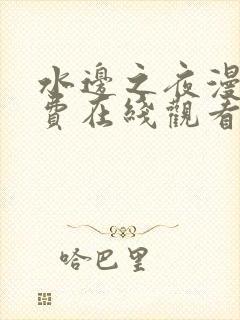 水邊之夜漫
費在綫觀看
哈巴里